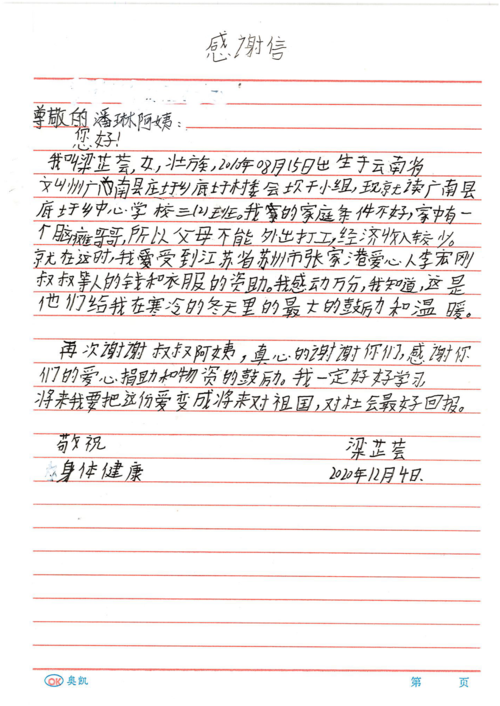 感谢信
尊敬的潘琳阿姨:
您好!
我叫梁芷荟,女,壮族,2010年08月15日出生于云南省
文山州广南县底圩乡底圩村委会坎干小组,现就读广南县
底圩乡中心学校三(2)班。我家的家庭条件不好,家中有一
个脑瘫哥哥,所以父母不能外出打工,经济收入较少。
就在这时,我爱受到江苏省苏州市张家港爱心人李宏刚
叔叔等人的钱和衣服的资助。我感动万分,我知道,这是
他们给我在寒冷的冬天里的最大的鼓励和温暖。
再次谢谢叔叔阿姨,真心的谢谢你们,感谢你
们的爱心捐助和物资的鼓励。我一定好好学习
将来我要把这份爱变成将来对祖国,对社会最好回报。
敬祝 梁芷荟
身体健康 2020年12月4日.
OK 奥凯 第 页